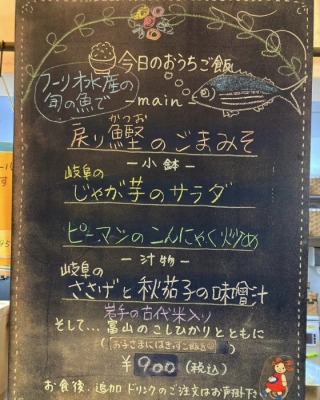 今日のおうちご飯
フーリ水産の
旬の魚で
-main-
かつお
戻り鰹のごまみそ
-小鉢-
岐阜の
じゃが芋のサラダ
ピーマンのこんにゃく炒め
-汁物-
岐阜の
ささげと秋茄子の味噌汁
岩手の古代米入り
そして…富山のこしひかりとともに
¥900(税込)
お食後、追加ドリンクのご注文はお声掛け下さい